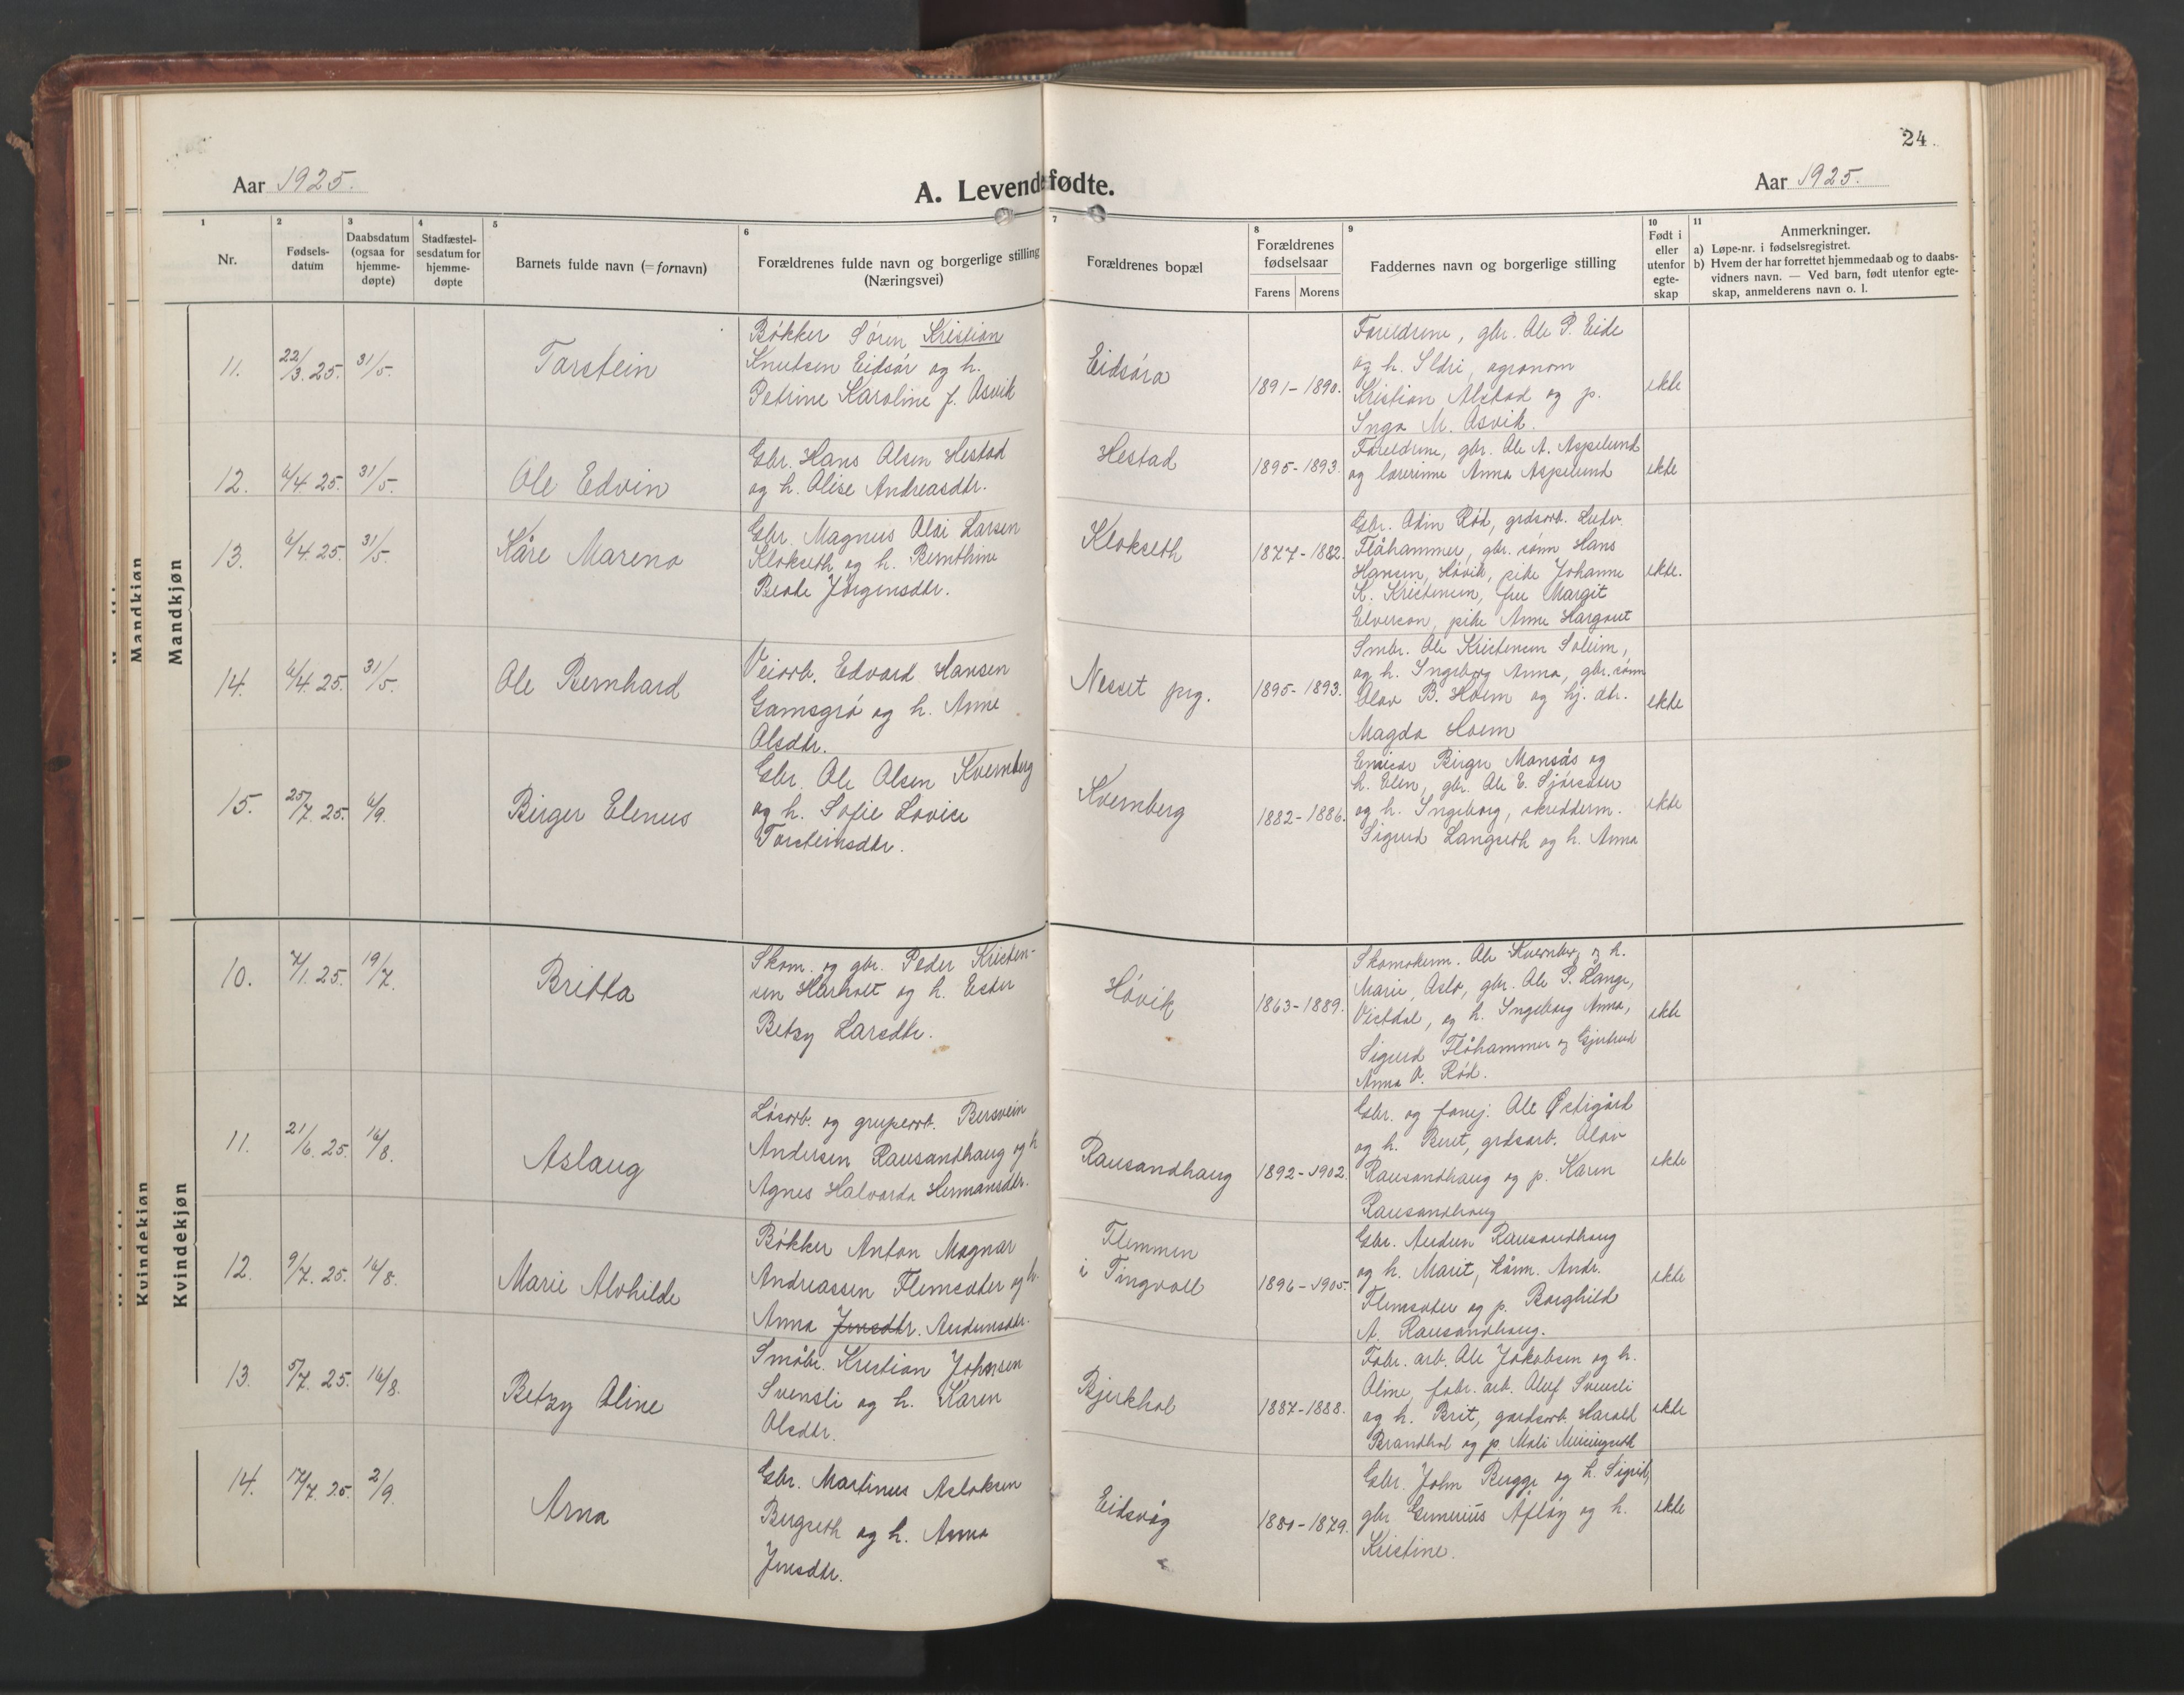 24.
Aar 1925.
A. Levendefødte.
Aar 1925.
1 2 3 4 5 6 7 8 9 10 11
Nr.
Fødsels-
datum
Daabsdatum
(ogsaa for
hjemme-
døpte)
Stadfæstel-
sesdatum for
hjemme-
døpte
Barnets fulde navn (= fornavn)
Forældrenes fulde navn og borgerlige stilling
(Næringsvei)
Forældrenes bopæl
Forældrenes
fødselsaar
Farens Morens
Faddernes navn og borgerlige stilling
Født i
eller
utenfor
egte-
skap
Anmerkninger.
a) Løpe-nr. i fødselsregistret.
b) Hvem der har forrettet hjemmedaab og to daabs-
vidners navn. — Ved barn, født utenfor egte-
skap, anmelderens navn o. l.
Mandkjøn
Mandkjøn
11. 22/3. 25. 31/5. Torstein
Bøkker Søren Kristian
Knutsen Eidsør og h.
Petrine Karoline J. Åsvik
Eidsøra
1891-1890.
Foreldrene, gbr. Ole P. Eide
og h. Ildri, agronom
Kristian Alstad og p.
Inga M. Åsvik.
ekte
12. 6/4 25. 31/5. Ole Edvin
Gbr. Hans Olsen Hestad
og h. Alise Andreasdtr.
Hestad
1895-1893.
Foreldrene, gbr. Ole A. Aspelund
og lærerinne Anna Aspelund
ekte
13. 6/4 25. 31/5. Kåre Mareno
Gbr. Magnus Olai Larsen
Klokseth og h. Bernthine
Beate Jørgensdtr.
Klokseth
1877-1882.
Gbr. Odin Rød, grdsarb. Ludv.
Flåhammer, gbr. sønn Hans
Hansen, Høvik, pike Johanne
K. Kristensen, fru Margit
Elverson, pike Anne Hargaut
ekte.
14. 6/4 25. 31/5. Ole Bernhard
Veiarb. Edvard Hansen
Gamsgrø og h. Anne
Olsdtr.
Nesset prg.
1895-1893.
Smbr. Ole Kristensen Solem,
og h. Ingeborg Anna, gbr. sønn
Olav B. Hoem og hj. dtr.
Magda Hoem
ekte
15. 25/7. 25. 6/9. Birger Elenus
Gbr. Ole Olsen Kvernberg
og h. Sofie Lovise
Torsteinsdtr.
Kvernberg
1882-1886.
Birger Monsås og
h. Elen, gbr. Ole E. Sjørsæter
og h. Ingeborg, skredderm.
Sigurd Langseth og h. Anna
ekte
Kvindekjøn
Kvindekjøn
10. 7/1. 25. 19/7. Britta
Skom. og gbr. Peder Kristen-
sen Hargaut og h. Ester
Betzy Larsdtr.
Høvik
1863-1889.
Skomakerm. Ole Kvernberg og h.
Marie, Oslo, gbr. Ole P. Lange,
Vistdal, og h. Ingeborg Anna,
Sigurd Flåhammer og Gjertrud
Anna O. Rød.
ekte
11. 21/6. 25. 16/8. Aslaug
Løsarb. og grubearb. Bersvein
Andersen Rausandhaug og h
Agnes Halvarda Hermansdtr.
Rausandhaug
1892-1902.
Gbr. og Ole Østigård
og h. Beret, grdsarb. Olav
Rausandhaug og p. Karen
Rausandhaug
ekte
12. 9/7. 25. 16/8. Marie Alvhilde
Bøkker Anton Magnar
Andreassen Flemsæter og h.
Anna Jensdtr. Audunsdtr.
Flemmen
i Tingvoll
1896-1905.
Gbr. Audun Rausandhaug
og h. Marit, Andr.
Flemsæter og p. Borghild
A. Rausandhaug.
ekte
13. 5/7. 25. 16/8. Betzy Oline
Småbr. Kristian Johnsen
Svensli og h. Karen
Olsdtr.
Bjerkhol
1887-1888.
Fabr. arb. Ole Jakobsen og h.
Oline, fabr. arb. Oluf Svensli
og h. Brit, gardsarb. Harald
Brandhol og p. Mali Meisingseth
ekte
14. 17/7. 25. 2/9. Arna
Gbr. Martinus Aslaksen
Bergseth og h. Anna
Jensdtr.
Eidsvåg
1880-1879.
Gbr. John Bugge og h. Sigrid,
gbr. Gunerius Afløy og h.
Kristine.
ekte